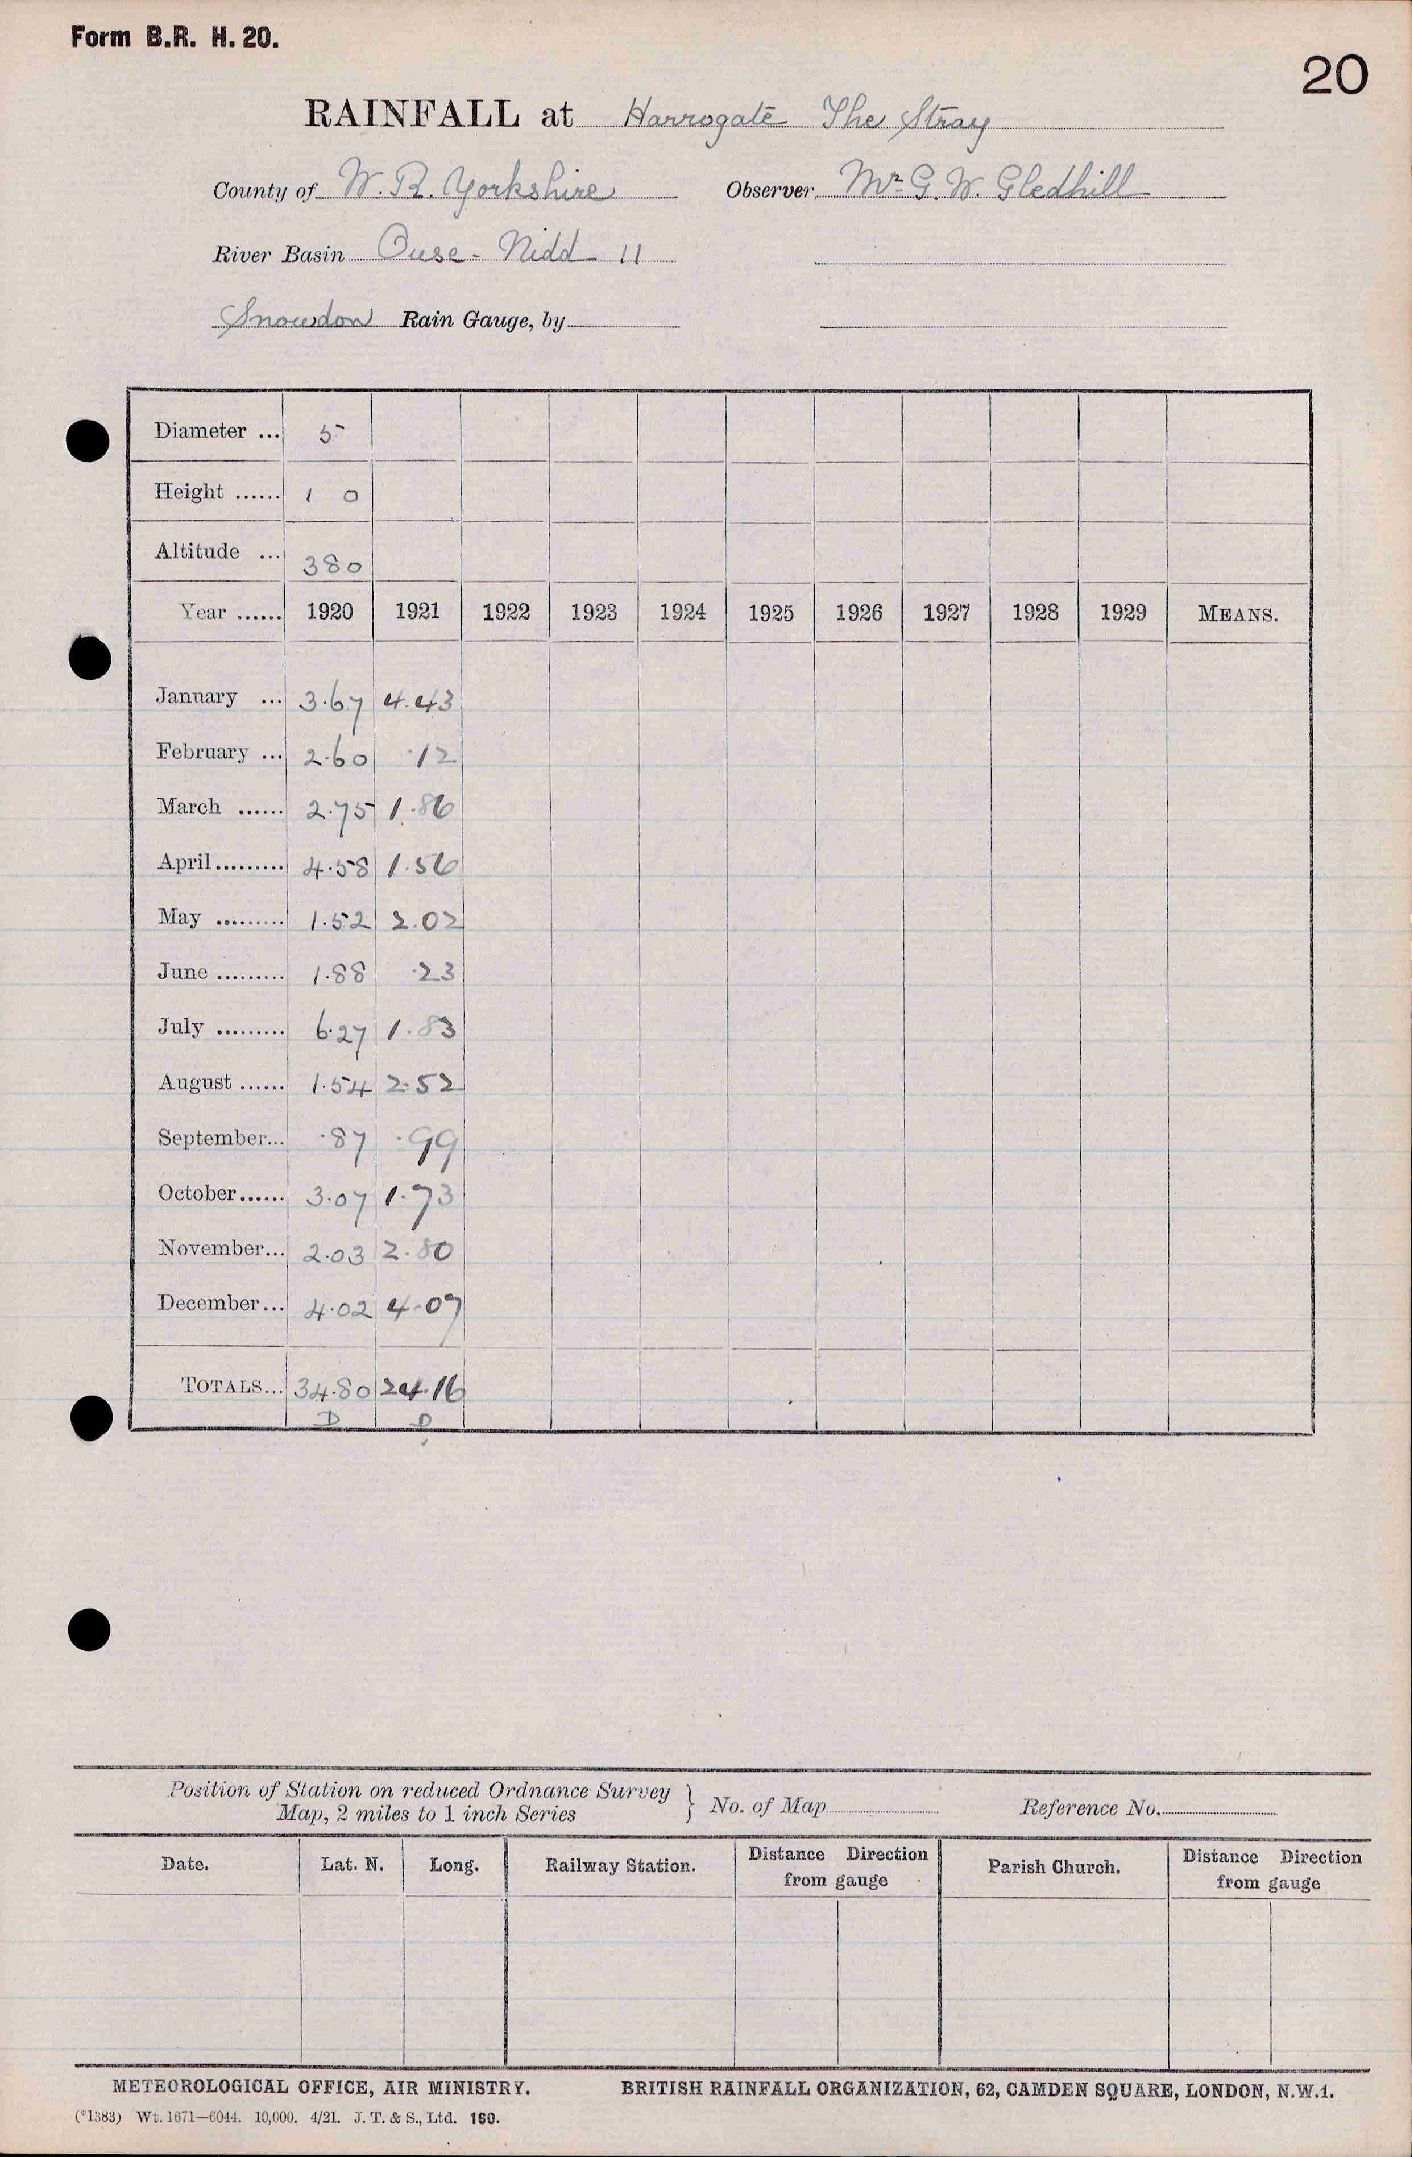 Form B.R. H. 20.
20
RAINFALL at Harrogate The Stray
County of W. R. Yorkshire Observer Mr G. W. Gledhill
River Basin Ouse - Nidd 11
Snowdon Rain Gauge, by
Diameter ... 5
Height ...... 1 0
Altitude ... 380
Year ...... 1920 1921 1922 1923 1924 1925 1926 1927 1928 1929 MEANS.
January ... 3.67 4.43
February ... 2.60 .12
March ...... 2.75 1.86
April ......... 4.58 1.56
May ......... 1.52 2.02
June ......... 1.88 .23
July ......... 6.27 1.83
August ...... 1.54 2.52
September... .87 .99
October...... 3.07 1.73
November... 2.03 2.80
December... 4.02 4.07
TOTALS... 34.80 24.16
D D
Position of Station on reduced Ordnance Survey
Map, 2 miles to 1 inch Series } No. of Map Reference No.
Date. Lat. N. Long. Railway Station. Distance Direction from gauge Parish Church. Distance Direction from gauge
METEOROLOGICAL OFFICE, AIR MINISTRY. BRITISH RAINFALL ORGANIZATION, 62, CAMDEN SQUARE, LONDON, N.W.1.
(*1383) Wt. 1671—6044. 10,000. 4/21. J. T. & S., Ltd. 160.